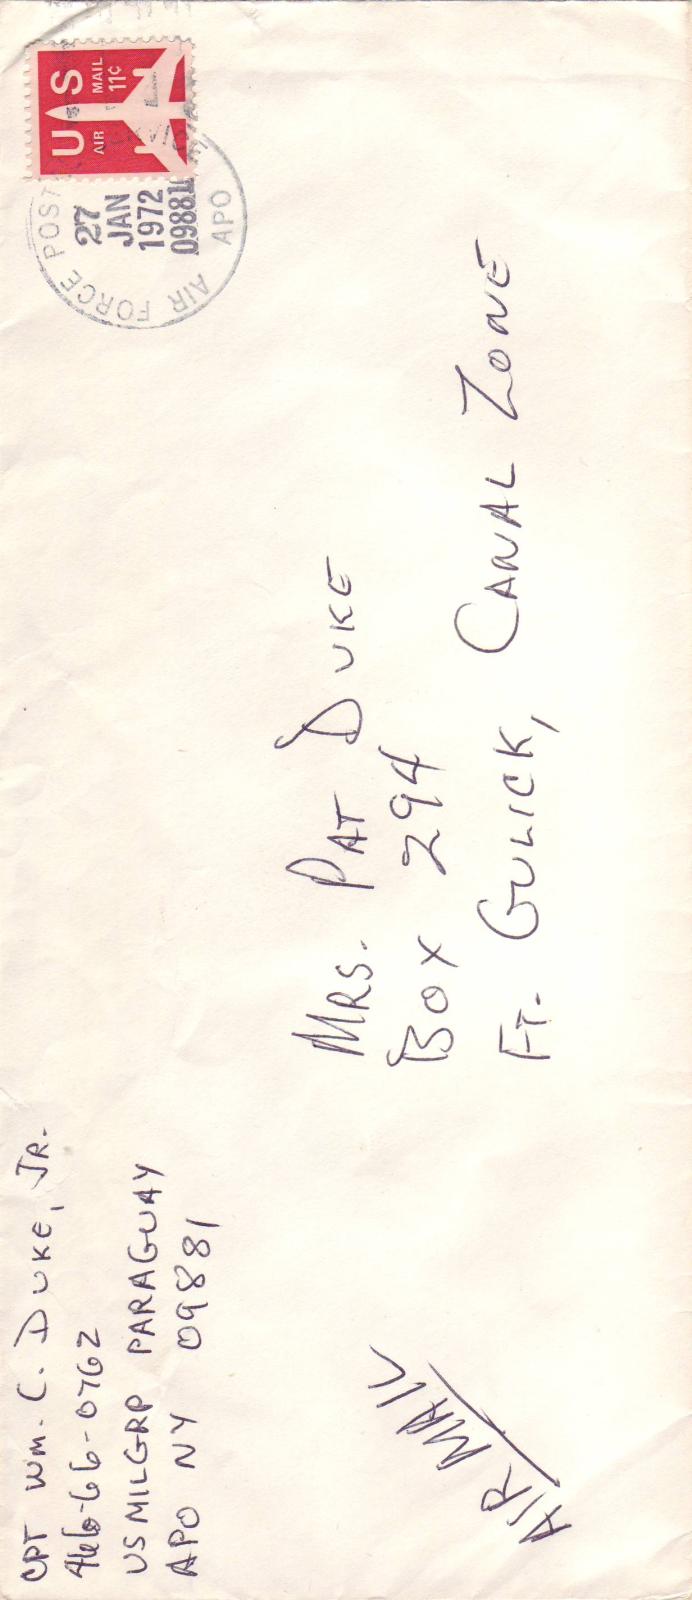 CPT WM. C. DUKE, JR.
466-66-0762
US MILGRP PARAGUAY
APO NY 09881
US
AIR MAIL
11¢
AIR FORCE POST
APO
27
JAN
1972
09881
MRS. PAT DUKE
BOX 294
FT. GULICK, CANAL ZONE
AIR MAIL